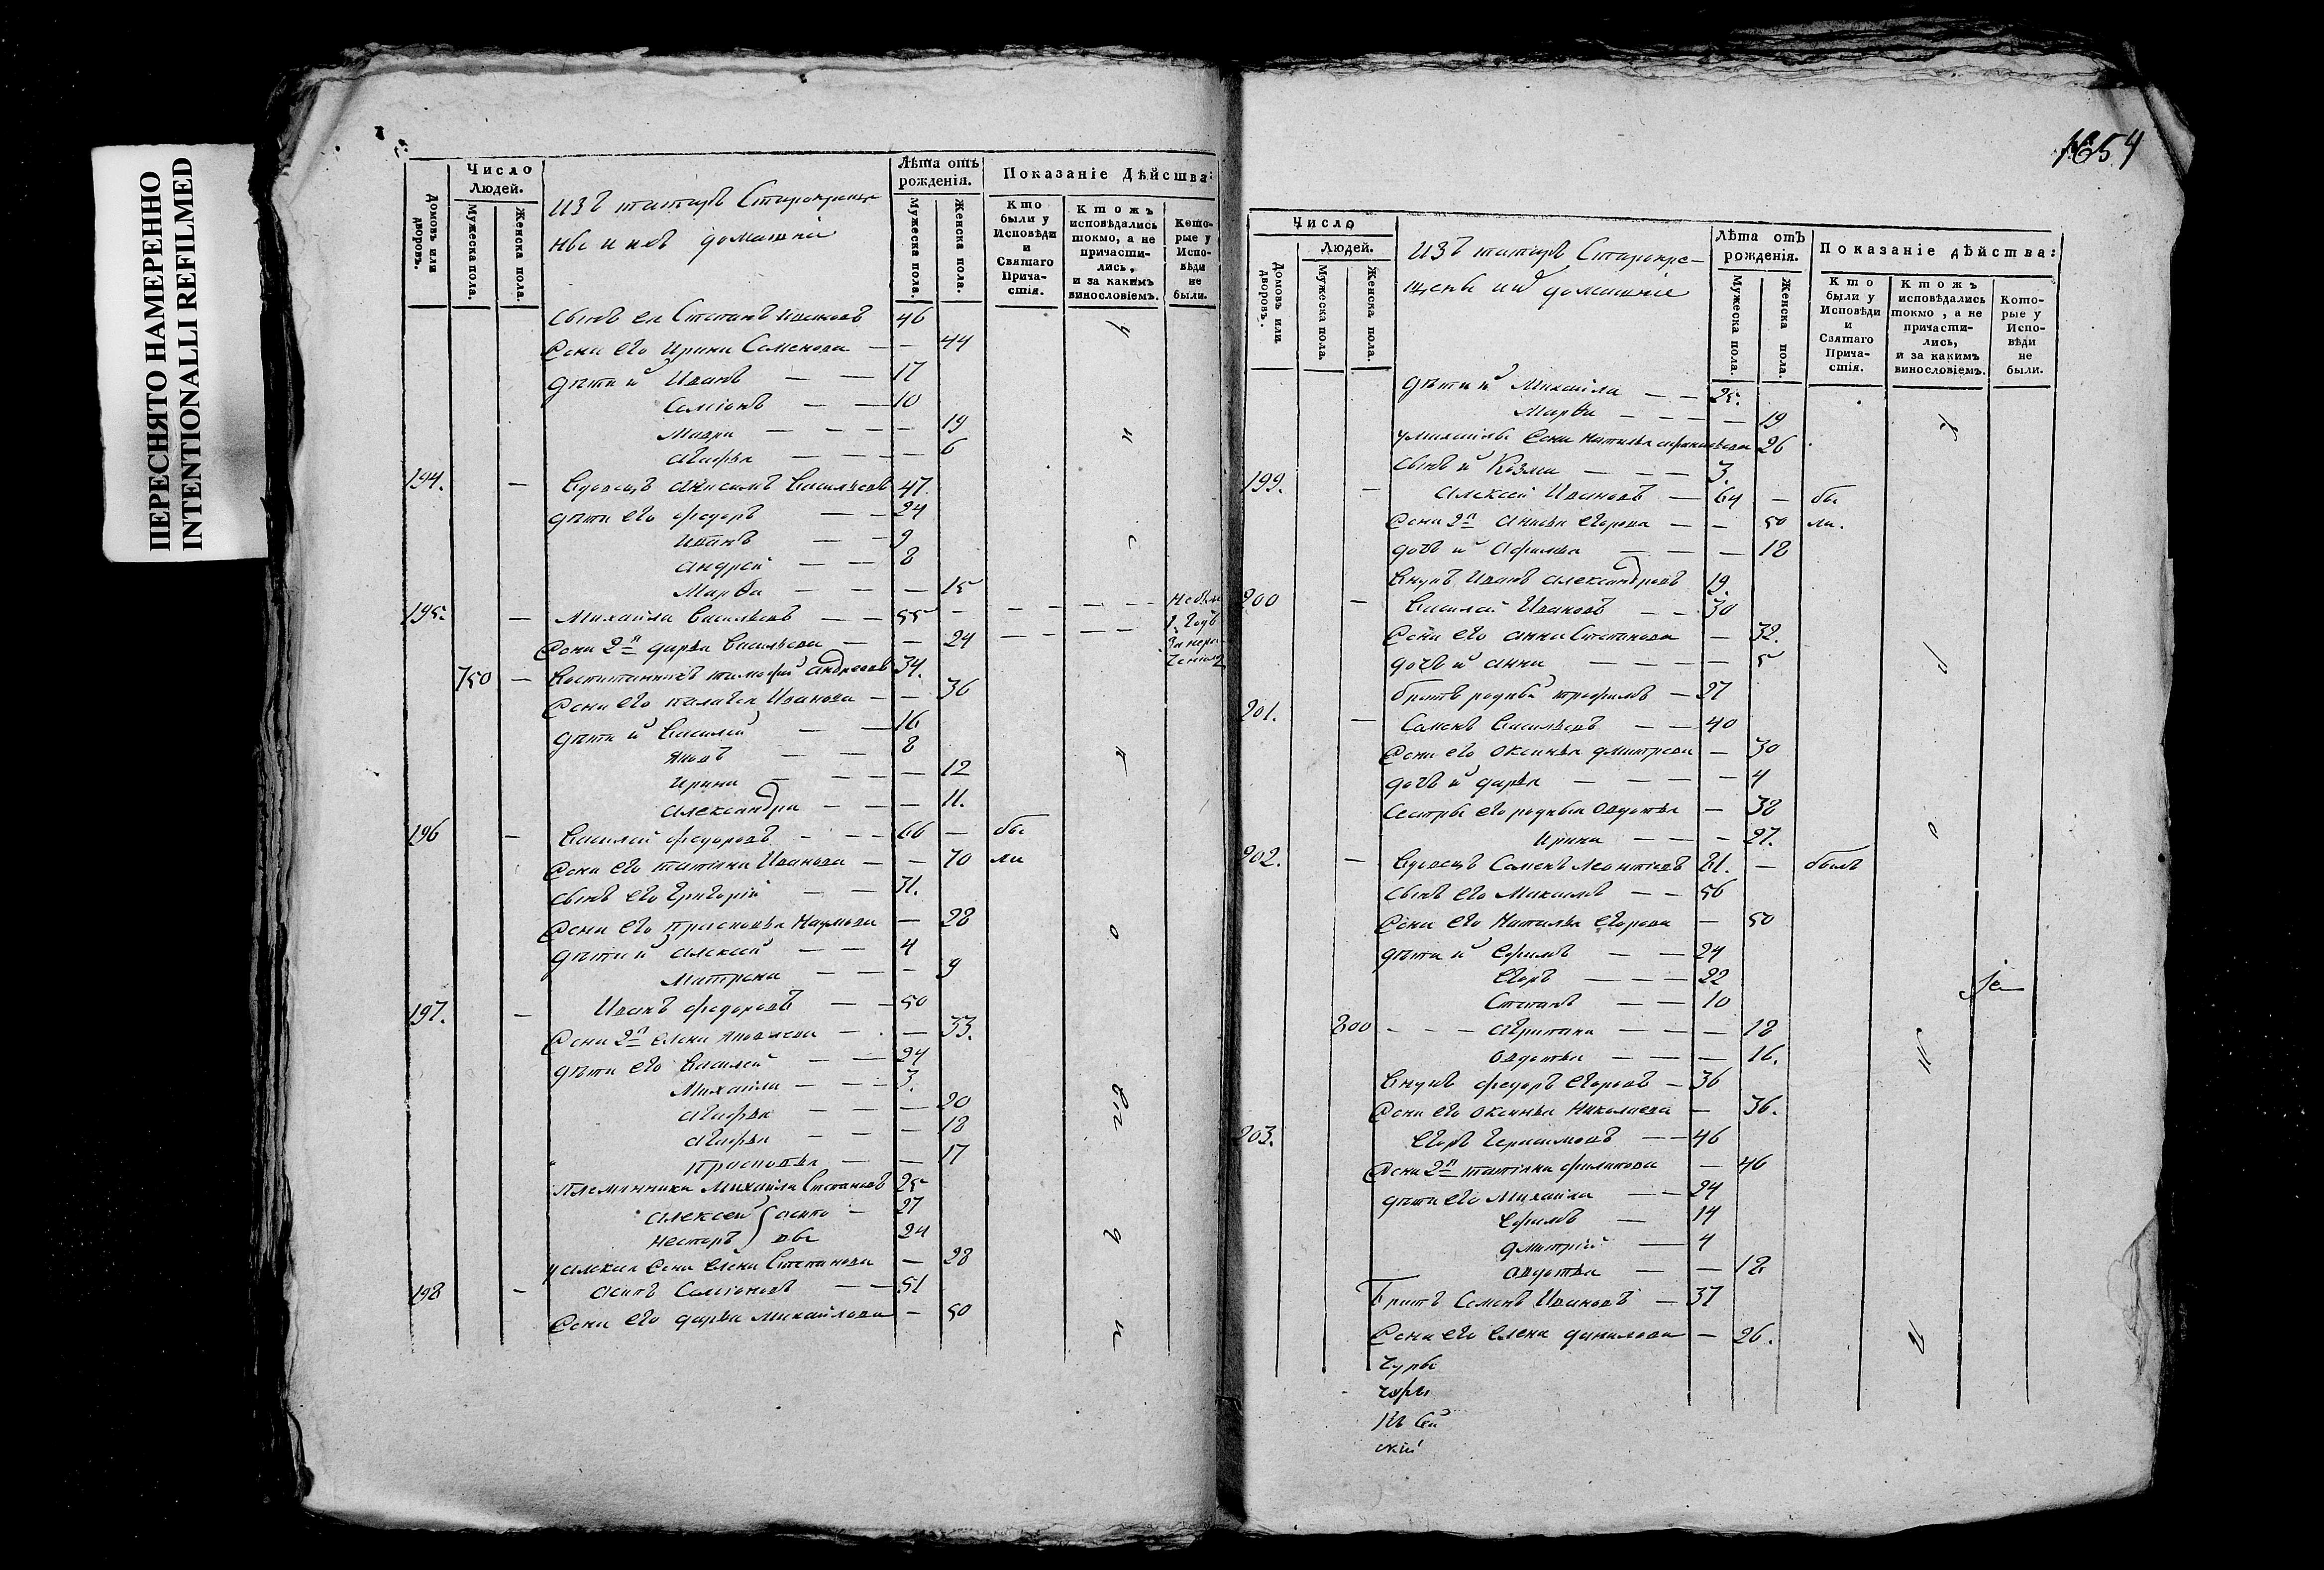 ПЕРЕСНЯТО НАМЕРЕННО
INTENTIONALLI REFILMED
Число Людей.
Домовъ или дворовъ.
Мужеска пола.
Женска пола.
изъ татаръ Старокреще
ны и ихъ домашнiи
Лѣта отъ рожденiя.
Мужеска пола.
Женска пола.
Показанiе Дѣйства:
Кто были у Исповѣди и Святаго Причастiя.
Ктожъ исповѣдались токмо, а не причастились, и за какимъ винословiемъ.
Которые у Исповѣди не были.
сынъ ея Степанъ Ивановъ 46
жена его Ирина Семенова — — 44
дѣти и͏хъ Иванъ — — 17
Самсонъ — — 10
Мавра — — — — 19
Агафья — — — — 6
194. — вдовецъ Анисимъ Васильевъ 47.
дѣти его Федоръ — — 24
Иванъ — — 9
Андрей — — 8
Марѳа — — — 15
195. — Михайла Васильевъ — — 55 — — — — — не были
жена 2я дарья Васильева — — 24 — — — —
750 — воспитанникъ тимофей Андреевъ 34.
жена его пелагея Иванова — — 36
дѣти ихъ Василей — — 16
Яковъ — — 8
Ирина — — — — 12
Александра — — — 11.
196 — Василей Федоровъ — — — 66 — бы
жена его татiана Иванова — — 70 ли
сынъ его Григорiй — — 31.
жена его прасковья Наумова — 28
дѣти ихъ Алексей — — 4
Матрена — — — 9
197. — Иванъ Федоровъ — — 50
жена 2я Елена Яковлева — — 33.
дѣти его Василей — — 24
Михайла — — — 3.
Агафья — — — 20
Агафья — — — 18
прасковья — — 17
племянники Михайла Степановъ 25
Алексей — 27
Несторъ 24
у Алексея жена Елена Степанова — 28
198 — осипъ — — 51
жена его дарья Михайлова — 50
1654
Число Людей.
Домовъ или дворовъ.
Мужеска пола.
Женска пола.
изъ татаръ Старокре-
щены ихъ домашнiе
Лѣта отъ рожденiя.
Мужеска пола.
Женска пола.
Показанiе дѣйства:
Кто были у Исповѣди и Святаго Причастiя.
Ктожъ исповѣдались токмо, а не причастились, и за какимъ винословiемъ.
Которые у Исповѣди не были.
дѣти ихъ Михайла — — 25.
Марѳа — — — 19
у михайлы жена Наталья 26
сынъ ихъ Козма — — — 3.
199. — Алексей Ивановъ — 64 — бы
жена 2я Егорова — — 50 ли.
дочь ихъ Афимья — — — 18
внукъ Иванъ Александровъ 19.
200 — Василей Ивановъ — — 30
жена его анна Степанова — 32.
дочь ихъ анна — — — — 5
братъ родный трофимъ — 27
201. — Семенъ Васильевъ — — 40
жена его оксинья дмитрева — 30
дочь ихъ дарья — — — — 4
Сестры его родныя Овдотья — 38
Ирина — — — 27.
202. — вдовецъ Семенъ Леонтiевъ 81. — былъ
сынъ его Максимъ — — 56
жена его Наталья Егорова — 50
дѣти ихъ Ефимъ — — 24
Егоръ — — — 22
Степанъ — — 10
800 — — — — — — 18
овдотья — — — 16.
внукъ федоръ Егоровъ — 36
жена его оксинья Николаева — 36.
203. Егоръ Герасимовъ — — 46
жена 2я татiана филипова — 46
дѣти его Михайла — — 24
Ефимъ — 14
дмитрiй — 4
овдотья — — 18
Братъ Семенъ Ивановъ — 37
жена его Елена данилова — 26.